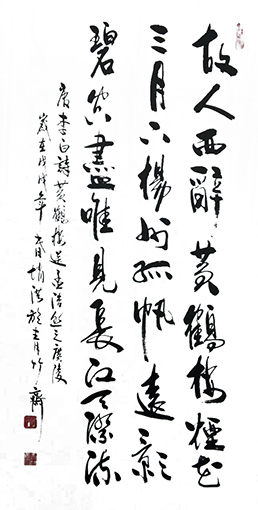 故人西辭黄鶴樓煙花
三月下楊州孤帆遠影
碧空盡唯見長江天際流
唐李白詩黄鶴樓送孟浩然之廣陵
歲在戊戌年 洪於 竹齋